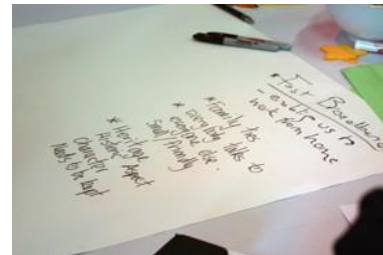 * Fast Broadband
- enabling us to
work from home
* Family ties
* Everybody talks to
everyone else.
Small/friendly
* Heritage
Historic Aspect
Character
Needs to be kept